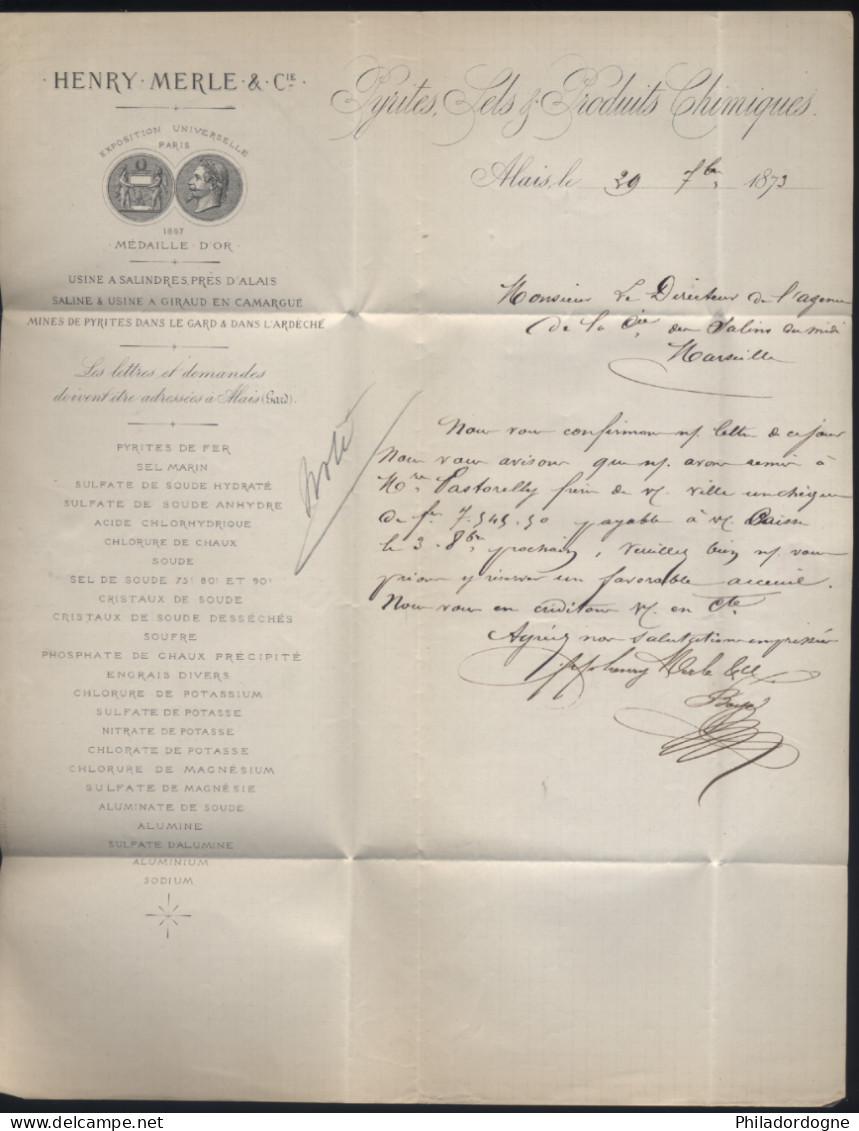 HENRY · MERLE · & · CIE ·
EXPOSITION UNIVERSELLE
PARIS
1867
MÉDAILLE D'OR
USINE A SALINDRES, PRÈS D'ALAIS
SALINE & USINE A GIRAUD EN CAMARGUE
MINES DE PYRITES DANS LE GARD & DANS L'ARDÈCHE
Les lettres et demandes
doivent être adressées à Alais (Gard).
PYRITES DE FER
SEL MARIN
SULFATE DE SOUDE HYDRATÉ
SULFATE DE SOUDE ANHYDRE
ACIDE CHLORHYDRIQUE
CHLORURE DE CHAUX
SOUDE
SEL DE SOUDE 75° 80° ET 90°
CRISTAUX DE SOUDE
CRISTAUX DE SOUDE DESSÉCHÉS
SOUFRE
PHOSPHATE DE CHAUX PRÉCIPITÉ
ENGRAIS DIVERS
CHLORURE DE POTASSIUM
SULFATE DE POTASSE
NITRATE DE POTASSE
CHLORATE DE POTASSE
CHLORURE DE MAGNÉSIUM
SULFATE DE MAGNÉSIE
ALUMINATE DE SOUDE
ALUMINE
SULFATE D'ALUMINE
ALUMINIUM
SODIUM
Pyrites, Sels & Produits Chimiques.
Alais, le 29 7bre 1873
Monsieur Le Directeur de l'agence
de la Cie des Salins du midi
Marseille
noté
Nous vous confirmons n/ lettre de ce jour
Nous vous avisons que n/ avons remis à
Mrs Pastorelly frères de v/ ville un chèque
de f 7.545.50 payable à v/ Caisse
le 3 8bre prochain, veuillez bien n/ vous
prions y réserver un favorable acceuil.
Nous vous en créditons v/ en Cte
Agréez nos salutations empressées
Henry Merle & Cie
Philadordogne